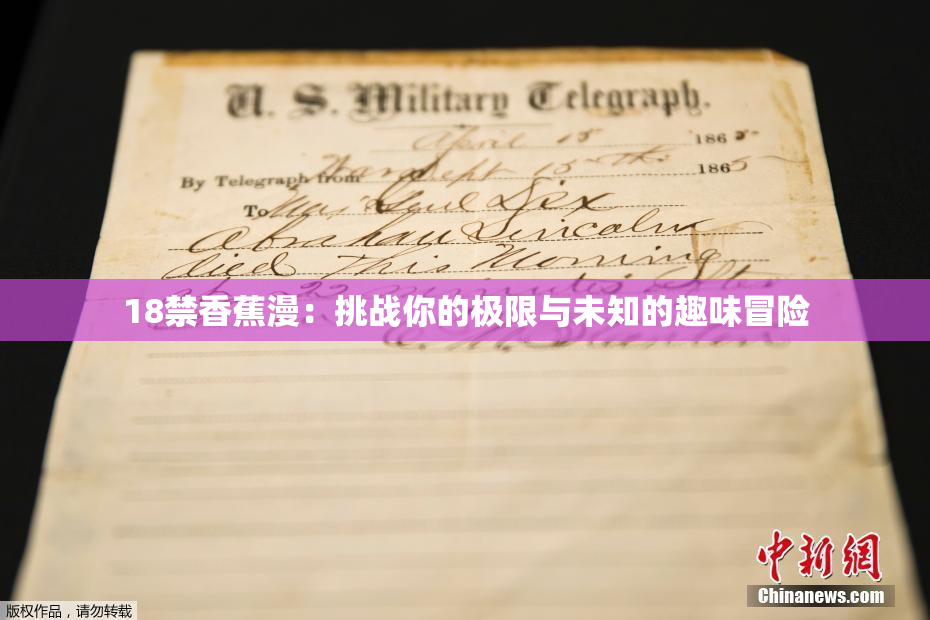 U. S. Military Telegraph.
April 15 1865
By Telegraph from War Dept 15th 1865
To Maj Genl Dix
Abraham Lincoln
died This Morning
22 minutes after
18禁香蕉漫：挑战你的极限与未知的趣味冒险
Stanton
中新网
Chinanews.com
版权作品，请勿转载